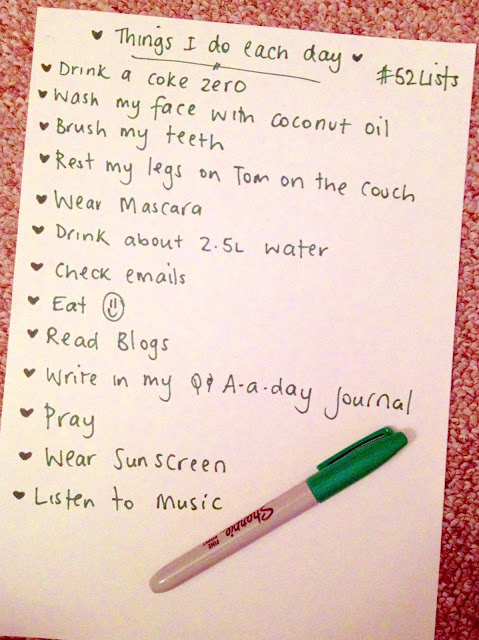 Things I do each day
#52Lists
Drink a coke zero
Wash my face with coconut oil
Brush my teeth
Rest my legs on Tom on the couch
Wear Mascara
Drink about 2.5L water
Check emails
Eat
Read Blogs
Write in my Q & A-a-day journal
Pray
Wear Sunscreen
Listen to Music
Sharpie
FINE POINT